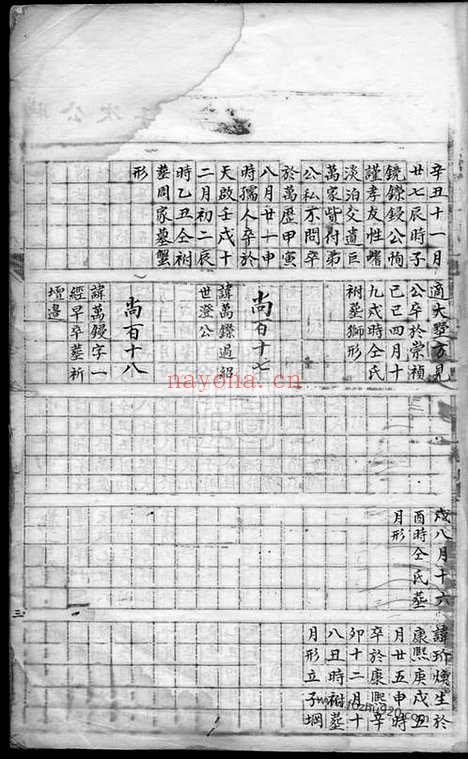 辛丑十一月
廿七辰時子
鏡鑠鋄公恂
謹孝友性嗜
淡泊交遺巨
萬家皆付弟
公私不問卒
於萬歷甲寅
八月廿一申
時孺人卒於
天啟壬戌十
二月初二辰
時乙丑仝祔
塟周家墓蟹
形
適大墅方見
公卒於崇禎
己巳四月十
九戌時仝氏
祔塟獅形
尚百十七
諱萬鑠過紹
世澄公
尚百十八
諱萬鋄字一
經早卒塟祈
壇邊
戌八月十六
酉時仝氏塟
月形
諱所燫生於
康熙庚戌五
月廿五申時
卒於康熙辛
卯十二月十
八丑時祔塟
月形立子㘭
三
nayona.cn